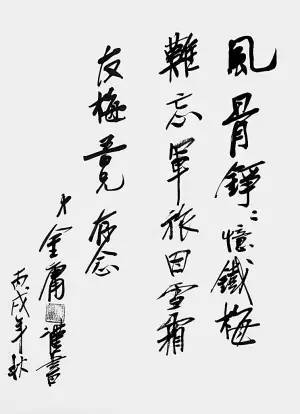 風骨錚〻憶鐵梅
難忘軍旅雪霜
友梅吾兄存念
弟金庸謹書
丙戌年秋